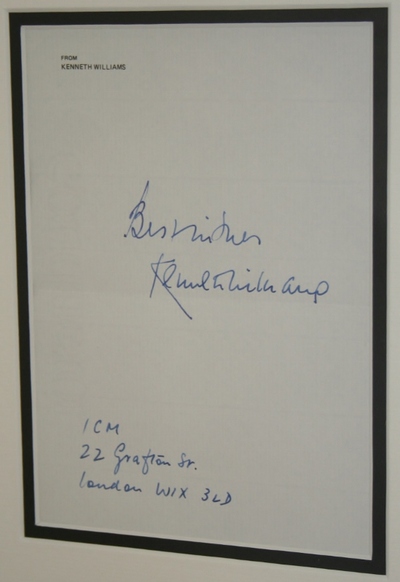 FROM
KENNETH WILLIAMS
Best wishes
Kenneth Williams
ICM
22 Grafton St.
London W1X 3LD